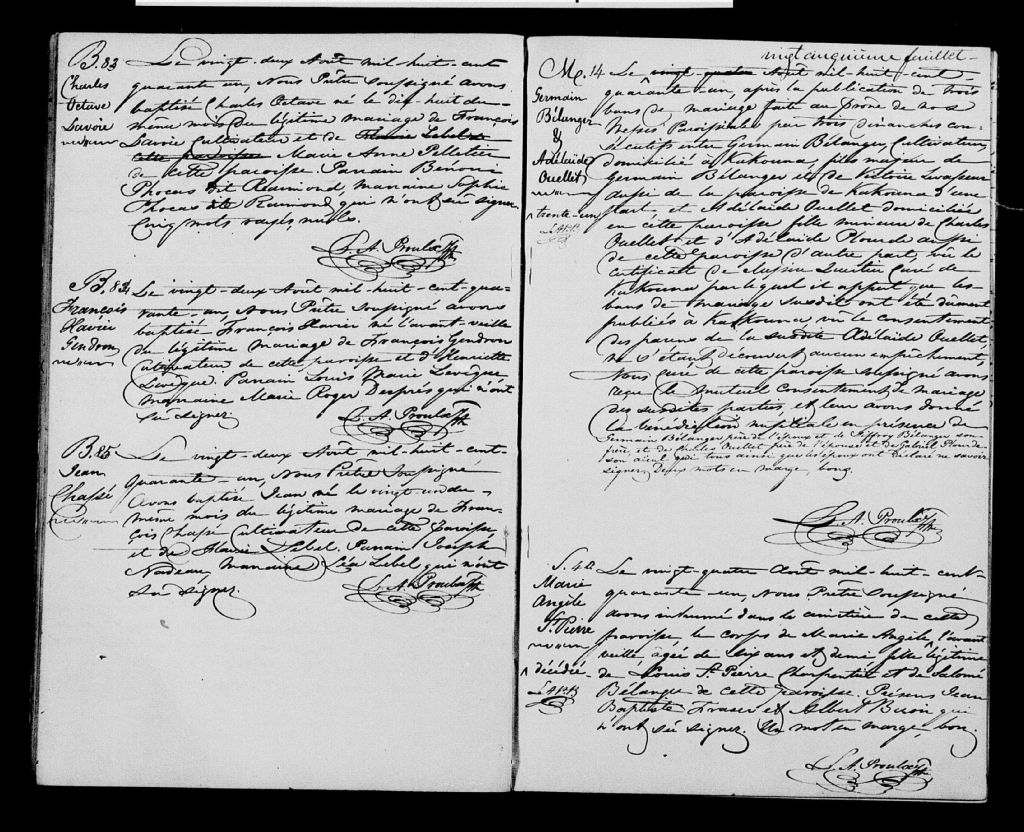 B. 83
Charles
Octave
Savoie
Le vingt-deux Août mil-huit-cent
quarante un, Nous Prêtre soussigné avons
baptisé Charles Octave né le dix-huit du
même mois du légitime mariage de François
Savoie Cultivateur et de Marie Lebel de
cette paroisse Marie Anne Pelletier
de cette paroisse. Parrain Bénoni
Phocas dit Raimond, marraine Sophie
Phocas dit Raimond qui n'ont su signer.
Cinq mots rayés nuls.
L. A. Proulx Ptre
B. 84
François
Xavier
Gendron
Le vingt-deux Août mil-huit-cent-qua-
rante-un, Nous Prêtre soussigné avons
baptisé François Xavier né l'avant-veille
du légitime mariage de François Gendron
Cultivateur de cette paroisse et d'Henriette
Lévêque. Parrain Louis Marie Lévêque
marraine Marie Roger Després qui n'ont
su signer
L. A. Proulx Ptre
B. 85
Jean
Chassé
Le vingt-deux Août mil-huit-cent-
quarante un, Nous Prêtre soussigné
avons baptisé Jean né le vingt un du
même mois du légitime mariage de Fran-
çois Chassé Cultivateur de cette Paroisse
et de Marie Lebel. Parrain Joseph
Nadeau, marraine Léa Lebel qui n'ont
su signer.
L. A. Proulx Ptre
vingt cinquième feuillet
M. 14
Germain
Bélanger
&
Adélaïde
Ouellet
trente-un
L.A.P. Ptre
Le vingt quatre Août mil-huit-cent-
quarante-un, après la publication de trois
bans de mariage faite au prône de nos
Messes Paroissiales par trois dimanches con-
sécutifs entre Germain Bélanger, Cultivateur,
domicilié à Kakouna, fils majeur de
Germain Bélanger et de Victoire Levasseur
aussi de la paroisse de Kakouna d'une
part, et Adélaïde Ouellet domiciliée
en cette paroisse fille mineure de Charles
Ouellet et d'Adélaïde Plourde aussi
de cette paroisse d'autre part, vu le
certificat de Messire Curé de
Kakouna par lequel il appert que les
bans de mariage susdits ont été dûment
publiés à Kakouna vu le consentement
des parens de la susdite Adélaïde Ouellet,
ne s'étant découvert aucun empêchement,
Nous curé de cette paroisse soussigné avons
reçu le mutuel consentement de mariage
des susdites parties, et leur avons donné
la bénédiction nuptiale en présence de
Germain Bélanger père de l'époux et de Joffroy Bélanger son
frère et de Charles Ouellet père de l'épouse et de Gabriel Plourde
son aïeul qui tous ainsi que les époux ont déclaré ne savoir
signer, deux mots en marge, bons.
L. A. Proulx Ptre
S. 42
Marie
Angèle
St. Pierre
^ décédée
L.A.P. Ptre
Le vingt-quatre Août mil-huit-cent-
quarante-un, Nous Prêtre soussigné
avons inhumé dans le cimetière de cette
paroisse le corps de Marie Angèle ^ l'avant
veille âgée de six ans et demi fille légitime
de Louis St. Pierre Charpentier et de Salomé
Bélanger de cette paroisse. Présens Jean
Baptiste Fraser et Albert qui
n'ont su signer. Un mot en marge, bon.
L. A. Proulx Ptre